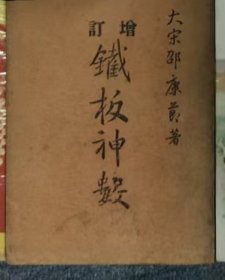 大宋邵康節著
增訂
鐵板神數